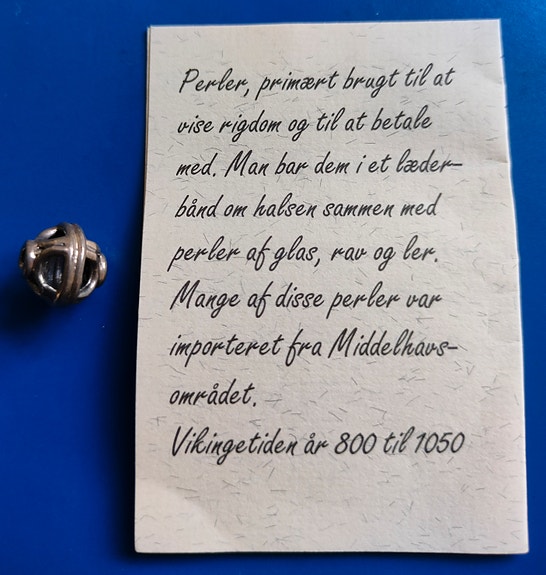 Perler, primært brugt til at
vise rigdom og til at betale
med. Man bar dem i et læder-
bånd om halsen sammen med
perler af glas, rav og ler.
Mange af disse perler var
importeret fra Middelhavs-
området.
Vikingetiden år 800 til 1050